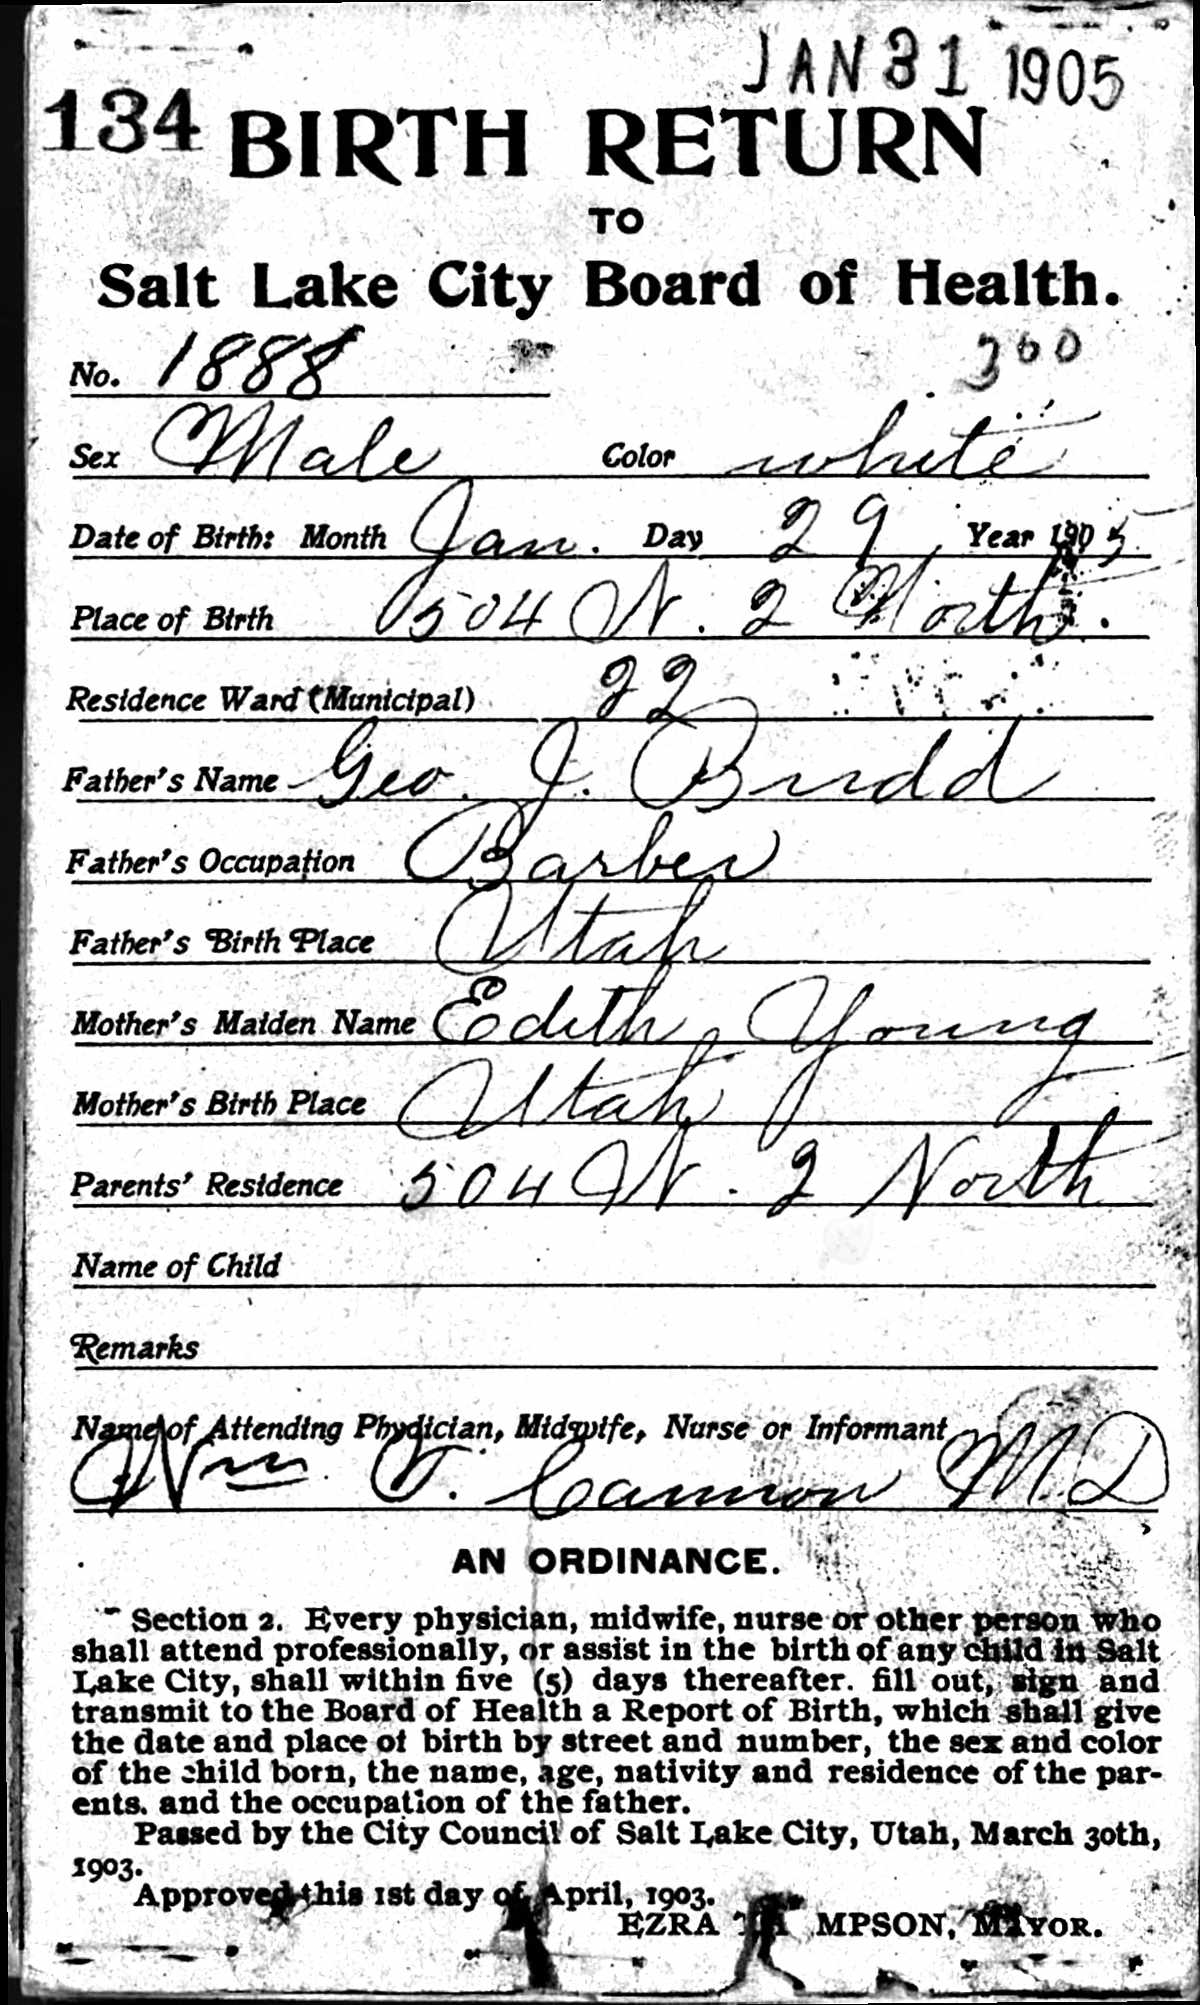 JAN 31 1905
134 BIRTH RETURN
TO
Salt Lake City Board of Health.
360
No. 1888
Sex Male Color white
Date of Birth: Month Jan. Day 29, Year 1905
Place of Birth 504 W. 2 North.
Residence Ward (Municipal) 22
Father's Name Geo. J. Budd
Father's Occupation Barber
Father's Birth Place Utah
Mother's Maiden Name Edith Young
Mother's Birth Place Utah
Parents' Residence 504 W. 2 North
Name of Child
Remarks
Name of Attending Physician, Midwife, Nurse or Informant
Wm T. Cannon M.D
AN ORDINANCE.
Section 2. Every physician, midwife, nurse or other person who
shall attend professionally, or assist in the birth of any child in Salt
Lake City, shall within five (5) days thereafter. fill out, sign and
transmit to the Board of Health a Report of Birth, which shall give
the date and place of birth by street and number, the sex and color
of the child born, the name, age, nativity and residence of the par-
ents. and the occupation of the father.
Passed by the City Council of Salt Lake City, Utah, March 30th,
1903.
Approved this 1st day of April, 1903.
EZRA THOMPSON, MAYOR.